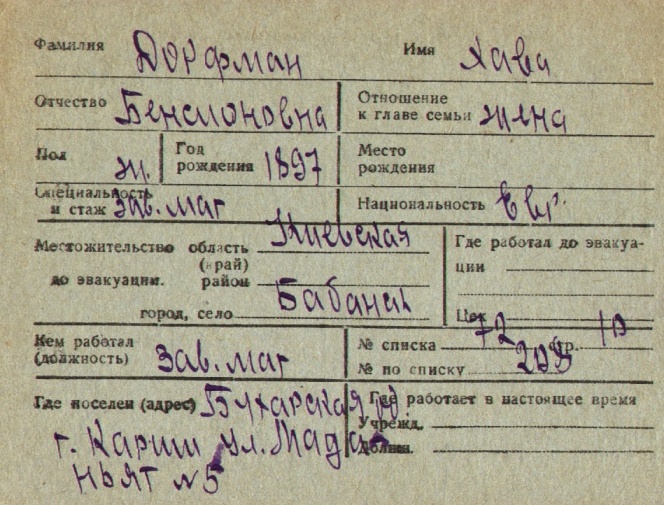 Фамилия Дорфман Имя Хава
Отчество Бенсионовна Отношение
к главе семьи жена
Пол ж. Год
рождения 1897 Место
рождения
Специальность
и стаж Зав. маг Национальность Евр.
Местожительство область Киевская
(край)
до эвакуации. район
город, село Бабанка
Где работал до эвакуа-
ции
Цех
Кем работал
(должность) Зав. маг
№ списка 72 стр. 10
№ по списку 208
Где поселен (адрес) Бухарская
г. Карши ул. Мада
ньят №5
Где работает в настоящее время
Учрежд.
Должн.